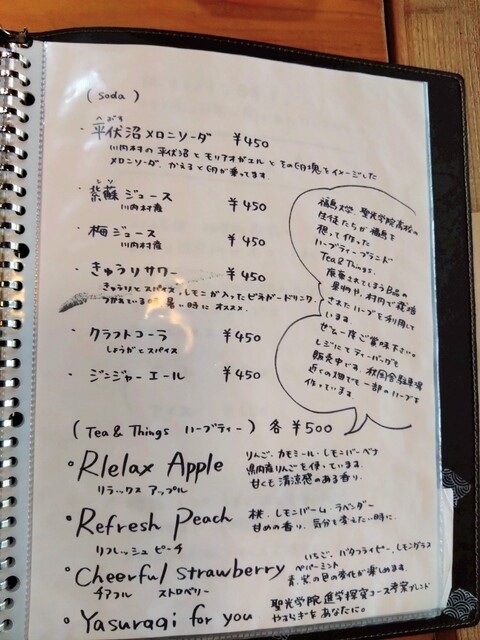 (soda)
へぶす
・平伏沼メロンソーダ ¥450
川内村の平伏沼とモリアオガエルとその卵塊をイメージした
メロンソーダ。かえると卵が乗ってます。
シソ
・紫蘇ジュース ¥450
川内村産
・梅ジュース ¥450
川内村産
・きゅうりサワー ¥450
きゅうりとスパイス、レモンが入ったビネガードリンク。
つかれている 暑い時にオススメ。
・クラフトコーラ ¥450
しょうがとスパイス
・ジンジャーエール ¥450
福島大学、聖光学院高校の
生徒たちが福島を
想って作った
ハーブティーブランド
Tea&Things.
廃棄されてしまうB品の
果物や、村内で栽培
されたハーブを利用して
います。
ぜひ一度ご賞味下さい。
レジにてティーバッグも
販売中です。秋風舎駐車場
近くの畑でも一部のハーブを
作っています。
(Tea & Things ハーブティー) 各¥500
° Rlelax Apple
リラックス アップル
りんご・カモミール・レモンバーベナ
県内産りんごを使っています。
甘くも清涼感のある香り。
° Refresh Peach
リフレッシュ ピーチ
桃、レモンバーム、ラベンダー
甘めの香り。気分を変えたい時に。
° Cheerful strawberry
チアフル ストロベリー
いちご、バタフライピー、レモングラス
ペパーミント
青、紫の色の変化が楽しめます。
° Yasuragi for you
聖光学院進学探究コース考案ブレンド
やすらぎをあなたに。